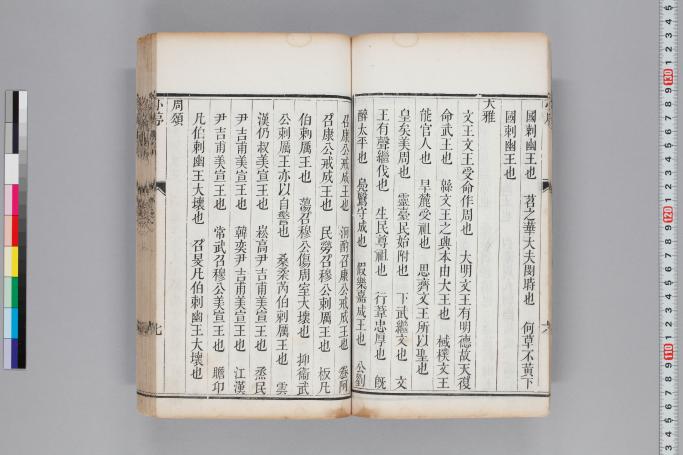 國刺幽王也　苕之華大夫閔時也　何草不黃下
國刺幽王也
大雅
文王文王受命作周也　大明文王有明德故天復
命武王也　緜文王之興本由大王也　棫樸文王
能官人也　旱麓受祖也　思齊文王所以聖也
皇矣美周也　靈臺民始附也　下武繼文也　文
王有聲繼伐也　生民尊祖也　行葦忠厚也　旣
醉太平也　鳧鷖守成也　假樂嘉成王也　公劉
召康公戒成王也　泂酌召康公戒成王也　卷阿
召康公戒成王也　民勞召穆公刺厲王也　板凡
伯刺厲王也　蕩召穆公傷周室大壞也　抑衞武
公刺厲王亦以自警也　桑柔芮伯刺厲王也　雲
漢仍叔美宣王也　崧高尹吉甫美宣王也　烝民
尹吉甫美宣王也　韓奕尹吉甫美宣王也　江漢
尹吉甫美宣王也　常武召穆公美宣王也　瞻卬
凡伯刺幽王大壞也　召旻凡伯刺幽王大壞也
周頌
小序
七